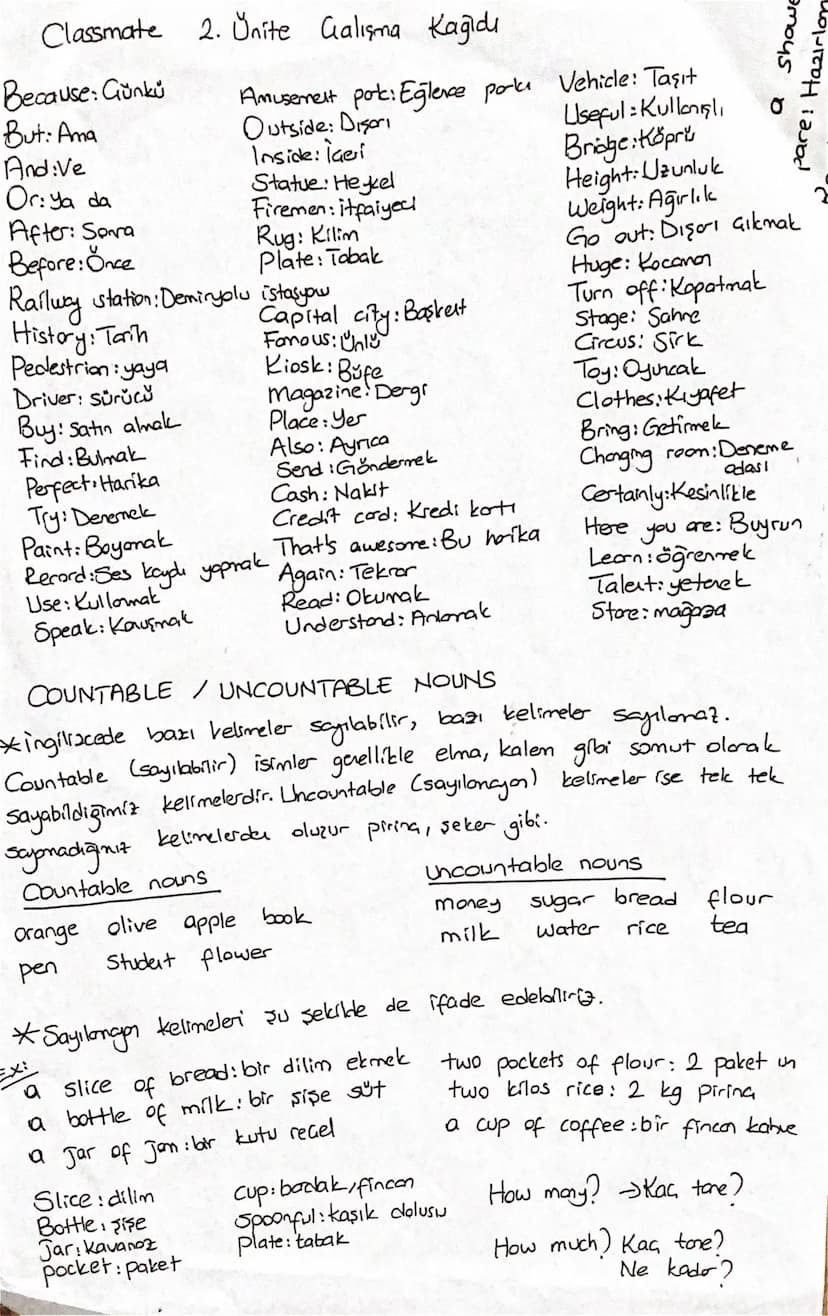 Classmate 2. Ünite Çalışma Kağıdı
Because: Çünkü
But: Ama
And: Ve
Or: Ya da
After: Sonra
Before: Önce
Railway station: Demiryolu istasyou
History: Tarih
Pedestrian: yaya
Driver: sürücü
Buy: Satın almak
Find: Bulmak
Perfect: Harika
Try: Denemek
Paint: Boyamak
Record: Ses kaydı yapmak
Use: Kullanmak
Speak: Konuşmak
Amusement park: Eğlence parkı
Outside: Dışarı
Inside: İçeri
Statue: Heykel
Firemen: itfaiyeci
Rug: Kilim
Plate: Tabak
Capital city: Başkent
Famous: Ünlü
Kiosk: Büfe
Magazine: Dergi
Place: Yer
Also: Ayrıca
Send: Göndermek
Cash: Nakit
Credit card: Kredi kartı
That's awesome: Bu harika
Again: Tekrar
Read: Okumak
Understand: Anlamak
Vehicle: Taşıt
Useful: Kullanışlı
Bridge: Köprü
Height: Uzunluk
Weight: Ağırlık
Go out: Dışarı çıkmak
Huge: Kocaman
Turn off: Kapatmak
Stage: Sahne
Circus: Sirk
Toy: Oyuncak
Clothes: Kıyafet
Bring: Getirmek
Changing room: Deneme
odası
Certainly: Kesinlikle
Here you are: Buyrun
Learn: öğrenmek
Talent: yetenek
Store: mağaza
a showe
pare: Hazırlan
COUNTABLE / UNCOUNTABLE NOUNS
* İngilizcede bazı kelimeler sayılabilir, bazı kelimeler sayılamaz.
Countable (sayılabilir) isimler genellikle elma, kalem gibi somut olarak
sayabildiğimiz kelimelerdir. Uncountable (sayılamayan) kelimeler ise tek tek
saymadığımız kelimelerden oluşur pirinç, şeker gibi.
Countable nouns
orange olive apple book
pen student flower
Uncountable nouns
money sugar bread flour
milk water rice tea
* Sayılamayan kelimeleri şu şekilde de ifade edebiliriz.
Ex:
a slice of bread: bir dilim ekmek
a bottle of milk: bir şişe süt
a jar of jam: bir kutu reçel
two pockets of flour: 2 paket un
two kilos rice: 2 kg pirinç
a cup of coffee: bir fincan kahve
Slice: dilim
Bottle: şişe
Jar: kavanoz
pocket: paket
cup: bardak, fincan
spoonful: kaşık dolusu
plate: tabak
How many? → Kaç tane?
How much) Kaç tane?
Ne kadar?